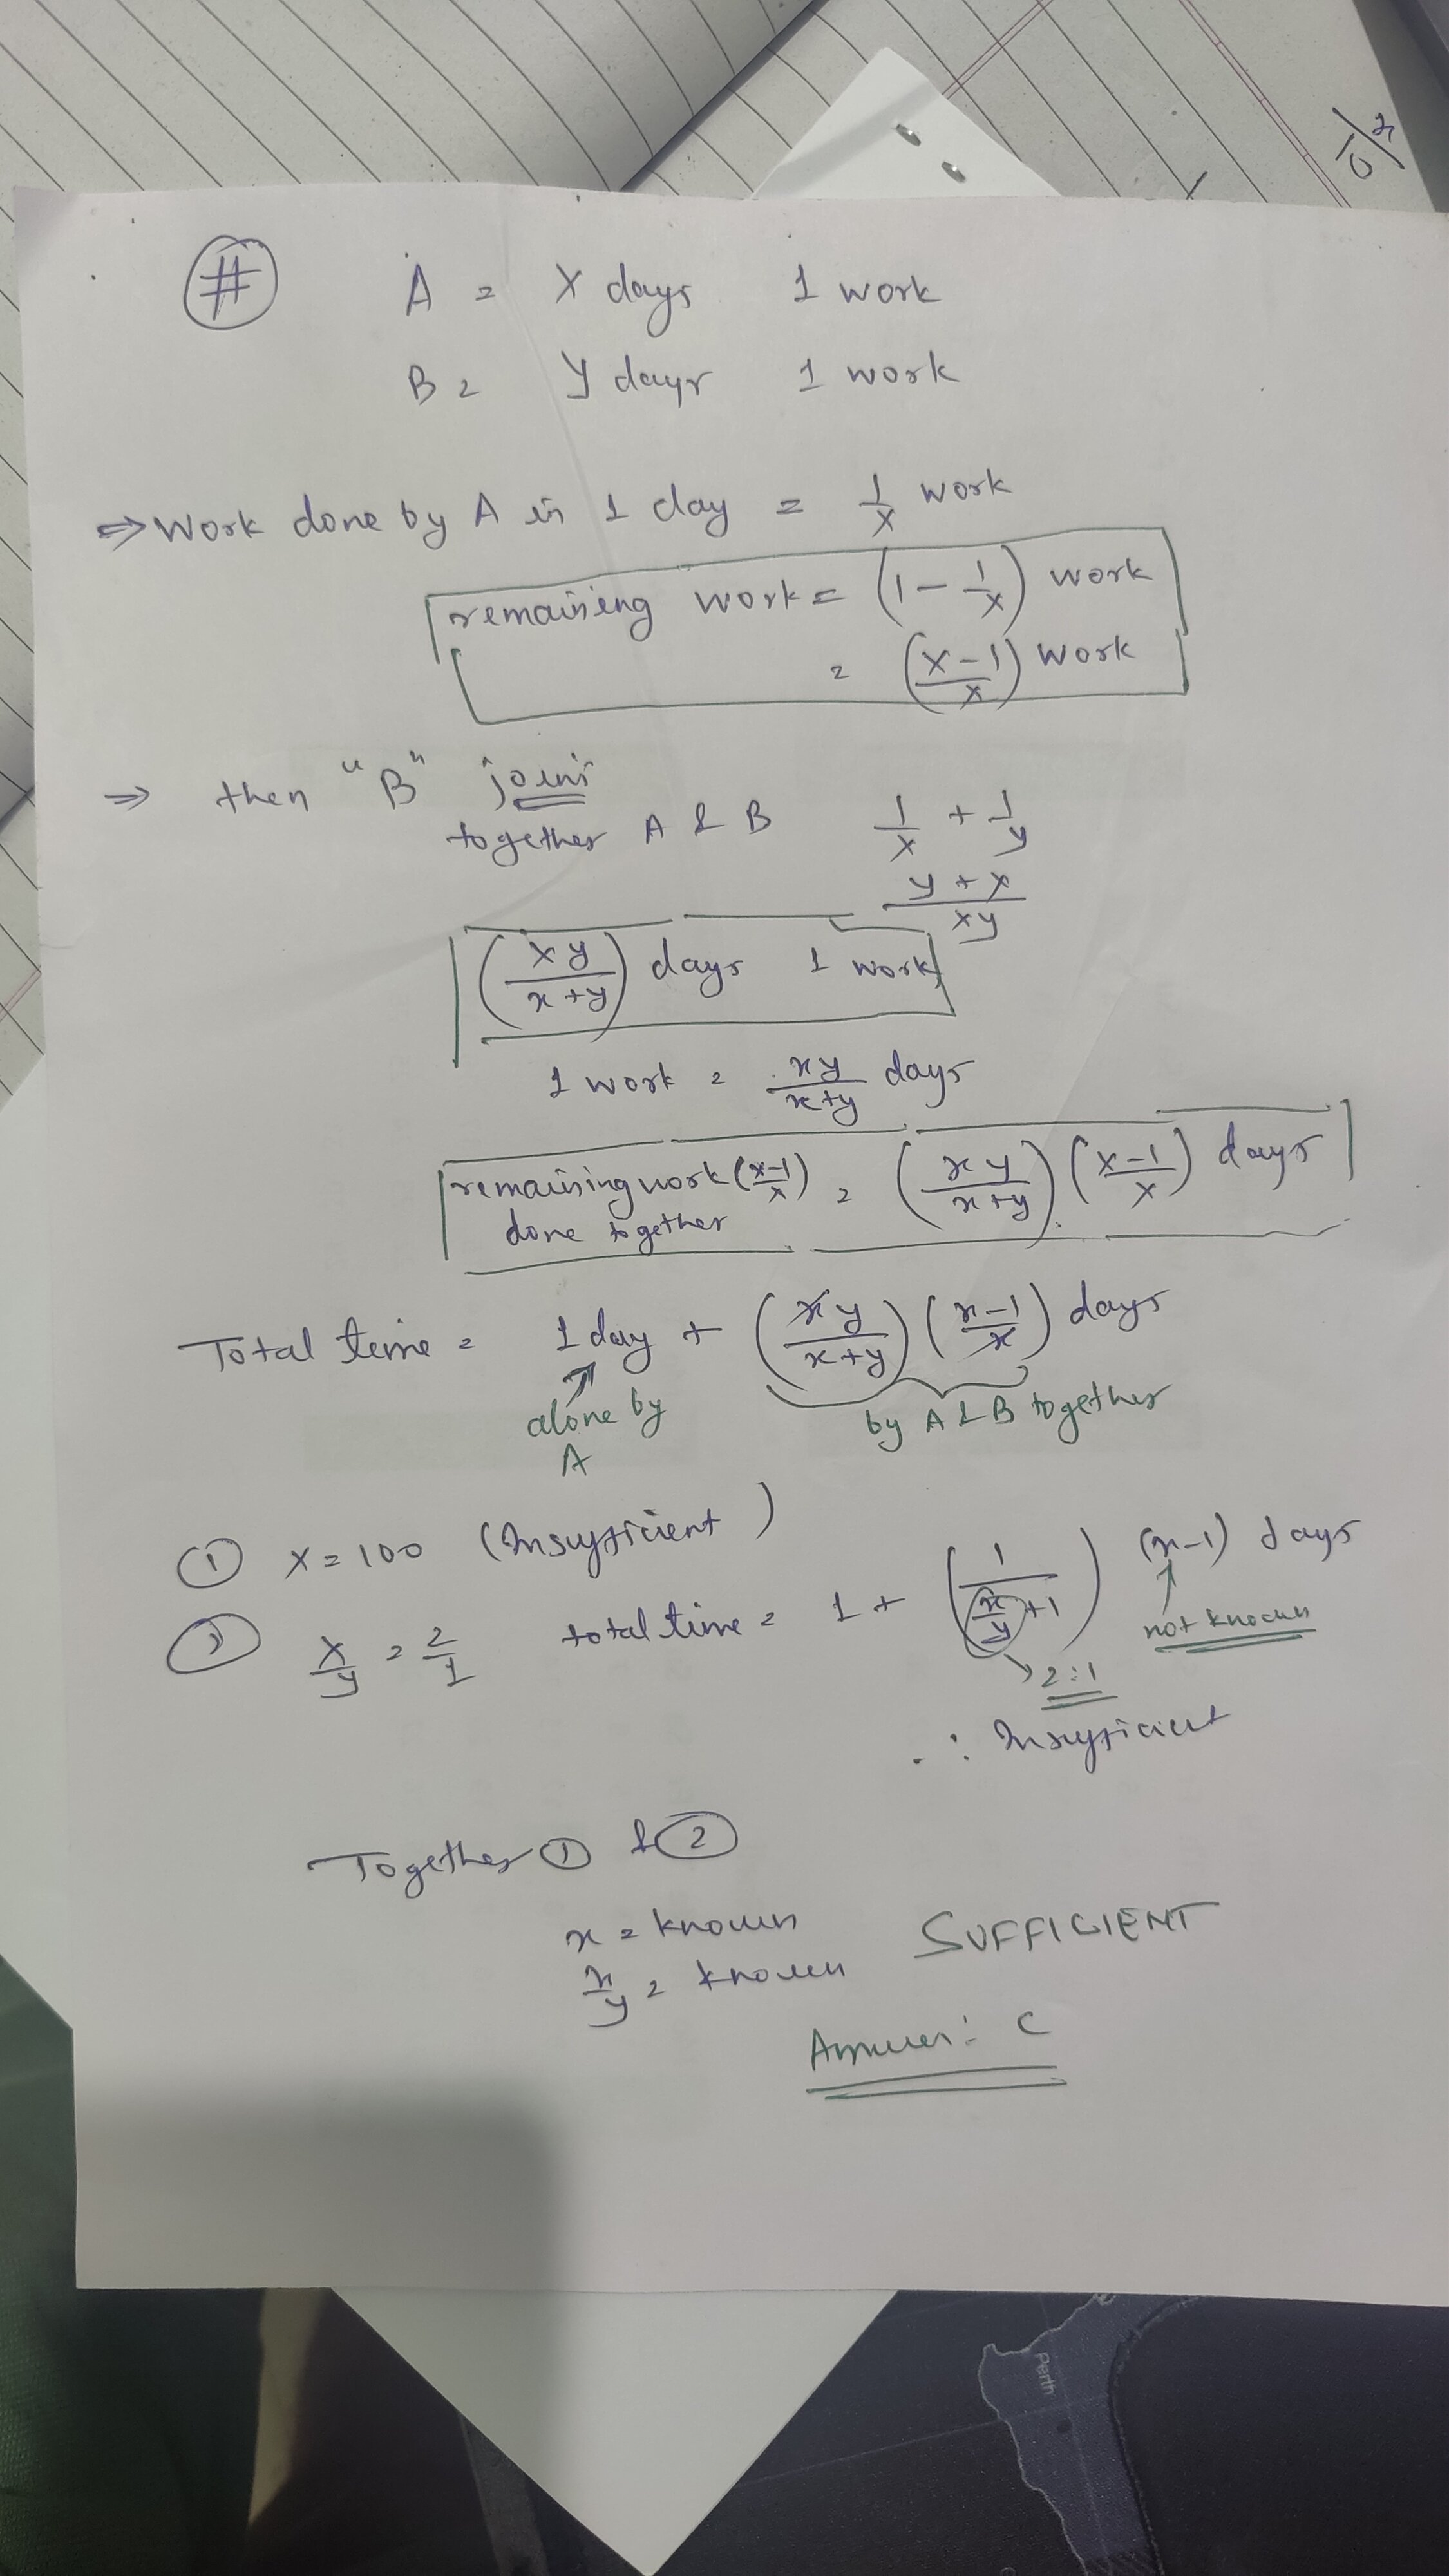 # A = X days 1 work
B = y days 1 work
⇒ Work done by A in 1 day = 1/x work
remaining work = (1 - 1/x) work
= (x-1/x) work
⇒ then "B" joins
together A & B 1/x + 1/y
y + x / xy
(xy / x+y) days 1 work
1 work = xy / x+y days
remaining work (x-1/x) = (xy / x+y) (x-1 / x) days
done together
Total time = 1 day + (xy / x+y) (x-1 / x) days
alone by A
by A & B together
① x = 100 (Insufficient)
② x/y = 2/1 total time = 1 + (1 / x/y + 1) (x-1) days
not known
2:1
∴ Insufficient
Together ① & ②
x = known
x/y = known SUFFICIENT
Answer: C
Perth